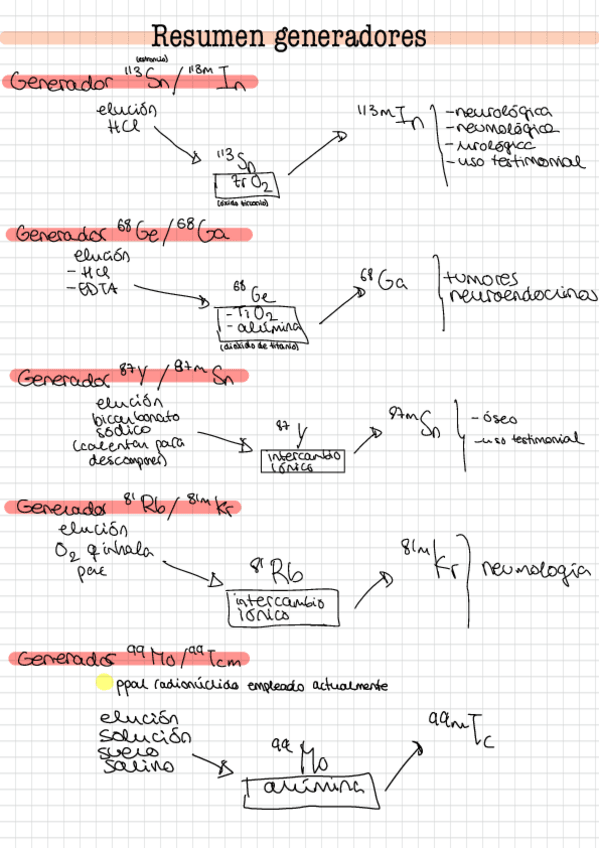 Resumen generadores
(estroncio)
Generador ¹¹³Sn/¹¹³ᵐIn
elución
HCl
¹¹³Sn
ZrO₂
¹¹³ᵐIn
-neurológica
-neumológica
-urológica
-uso testimonial
Generador ⁶⁸Ge/⁶⁸Ga
elución
-HCl
-EDTA
⁶⁸Ge
-TiO₂
-alúmina
(dióxido de titanio)
⁶⁸Ga
tumores
neuroendocrinos
Generador ⁸⁷Y/⁸⁷ᵐSn
elución
bicarbonato
sódico
(calentar para
descomponer)
⁸⁷Y
intercambio
iónico
⁸⁷ᵐSn
-óseo
-uso testimonial
Generador ⁸¹Rb/⁸¹ᵐKr
elución
O₂ q inhala
pac
⁸¹Rb
intercambio
iónico
⁸¹ᵐKr
neumología
Generador ⁹⁹Mo/⁹⁹Tcm
ppal radionúclido empleado actualmente
elución
solución
suero
salino
⁹⁹Mo
alúmina
⁹⁹ᵐTc